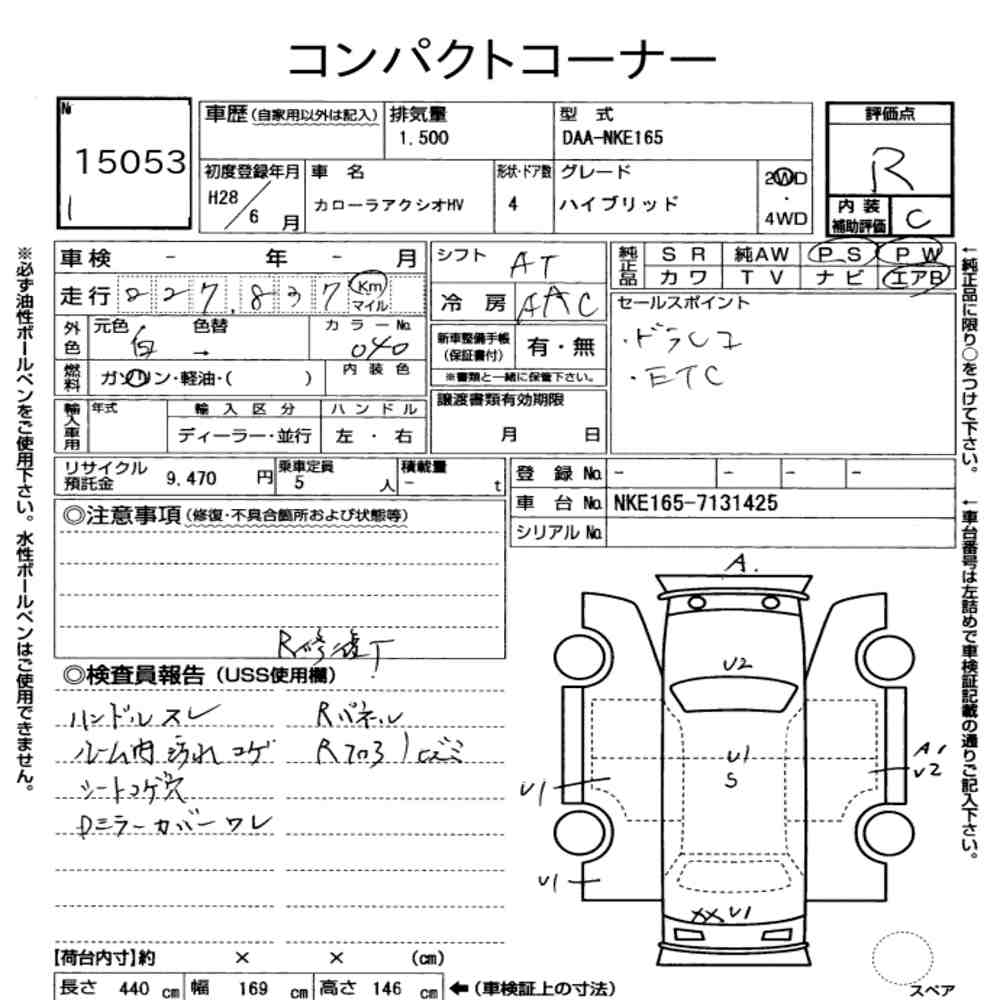 コンパクトコーナー
№ 15053
車歴(自家用以外は記入) 排気量 1.500 型式 DAA-NKE165 評価点 R
初度登録年月 H28/6月 車名 カローラアクシオHV 形状・ドア数 4 グレード ハイブリッド 2WD・4WD
内装補助評価 C
車検 - 年 - 月
走行 227,837 Km マイル
外色 元色 白 色替 → カラーNo. 040
燃料 ガソリン・軽油・( ) 内装色
輸入車用 年式 輸入区分 ハンドル
ディーラー・並行 左・右
シフト AT
冷房 AAC
新車整備手帳(保証書付) 有・無
※書類と一緒に保管下さい。
譲渡書類有効期限
月 日
純正品 SR 純AW PS PW
カワ TV ナビ エアB
セールスポイント
・ドラレコ
・ETC
リサイクル預託金 9.470 円 乗車定員 5 人 積載量 - t
登録No. - - - -
車台No. NKE165-7131425
シリアルNo.
◎注意事項(修復・不具合箇所および状態等)
R修復丁
◎検査員報告(USS使用欄)
ハンドルスレ Rパネル
ルーム内汚れコゲ Rフロアヒズミ
シートコゲ穴
Pミラーカバーワレ
A.
U2
U1
S
A1
U2
U1
U1
XX U1
【荷台内寸】約 × × (cm)
長さ 440 cm 幅 169 cm 高さ 146 cm ←(車検証上の寸法)
スペア
※必ず油性ボールペンをご使用下さい。水性ボールペンはご使用できません。
←純正品に限り○をつけて下さい。
←車台番号は左詰めで車検証記載の通りご記入下さい。